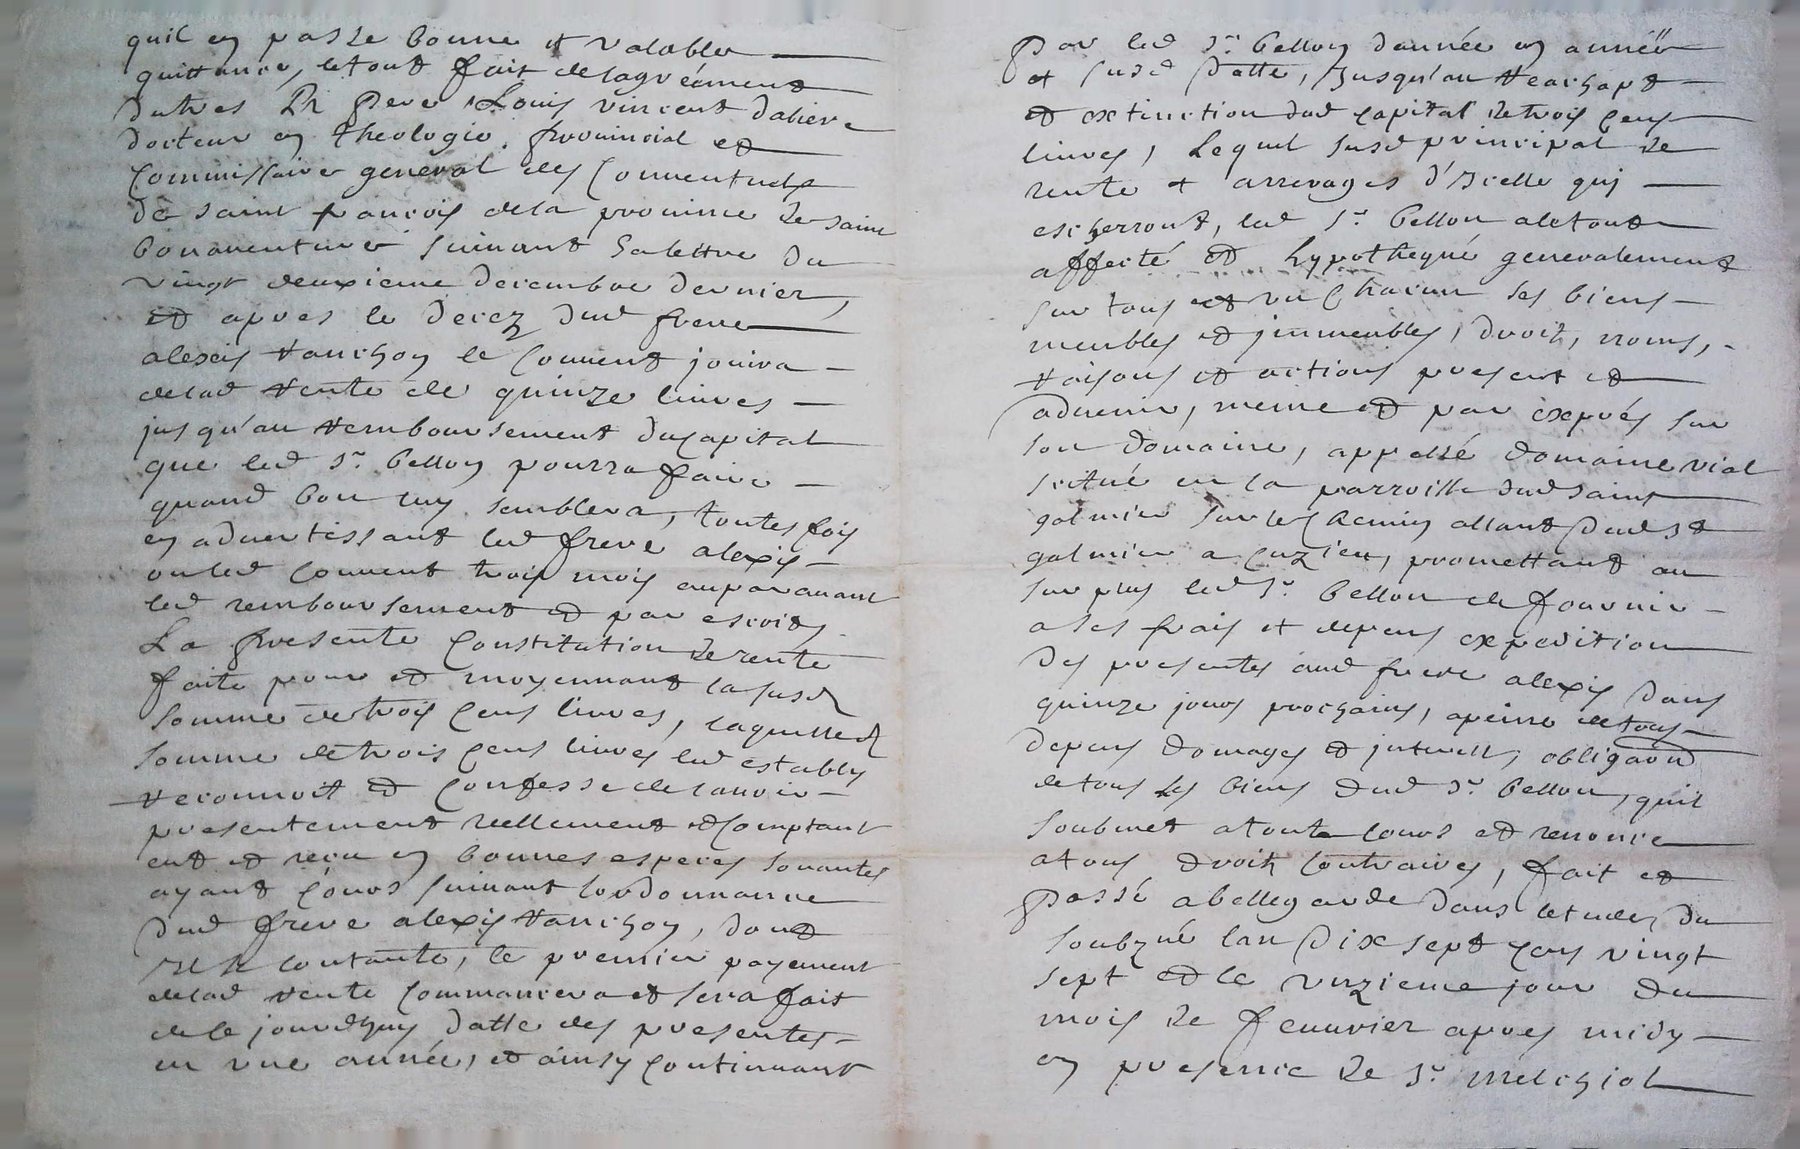 quil en passe bonne et valable
quittance, le tout fait de lagréement
du tres R. Pere Louis vincent daliere
docteur en theologie, provincial et
Commissaire general des Conventuels
de saint francois de la province de saint
bonaventure suivant sa lettre du
vingt deuxieme decembre dernier,
et apres le decez dud frere
alexis Hanchon le Couvent jouira
de lad rente de quinze livres
jusqu'au remboursement du capital
que led Sr. bellon pourra faire
quand bon luy semblera, toutesfois
en advertissant led frere alexis
ou led Couvent trois mois auparavant
led remboursement et par escrits
La presente Constitution de rente
faite pour et moyennant la susd
somme de trois cens livres, laquelle
somme de trois cens livres led estably
reconnoit et Confesse de lavoir
presentement reellement et Comptant
eut et receu en bonnes especes sonantes
ayant Cours suivant lordonnance
dud frere alexis Hanchon, dont
Il se contante, le premier payement
de lad rente Commancera et sera fait
de ce jourdhuy datte des presentes
en une année, et ainsy Continuant
Par led Sr. bellon dannée en année
et susd datte, Jusqu'au reachapt
et extinction dud capital de trois cens
livres, Lequel susd principal de
rente et arrerages d'Icelle qui
escherront, led Sr. bellon a le tout
affecté et hypothequé generalement
sur tous et un chacun ses biens
meubles et immeubles, droit, noms,
raisons et actions present et
advenir, meme et par exprés sur
son domaine, appellé domaine vial
scitué en la parroisse dud saint
galmier sur le Chemin allant dud St
galmier a cuzieu, promettant au
surplus led Sr. bellon de fournir
a ses frais et depens expedition
des presentes aud frere alexis dans
quinze jours prochains, a peine de tous
depens domages et interests, obligeant
de tous les biens dud Sr. bellon, quil
soubmet a toute Cours et renonce
a tous droits Contraires, fait et
passé a bellegarde dans letude du
soubzné lan Dix sept cens vingt
sept et le unzieme jour du
mois de fevrier apres midy
en presence de Sr. melchiol